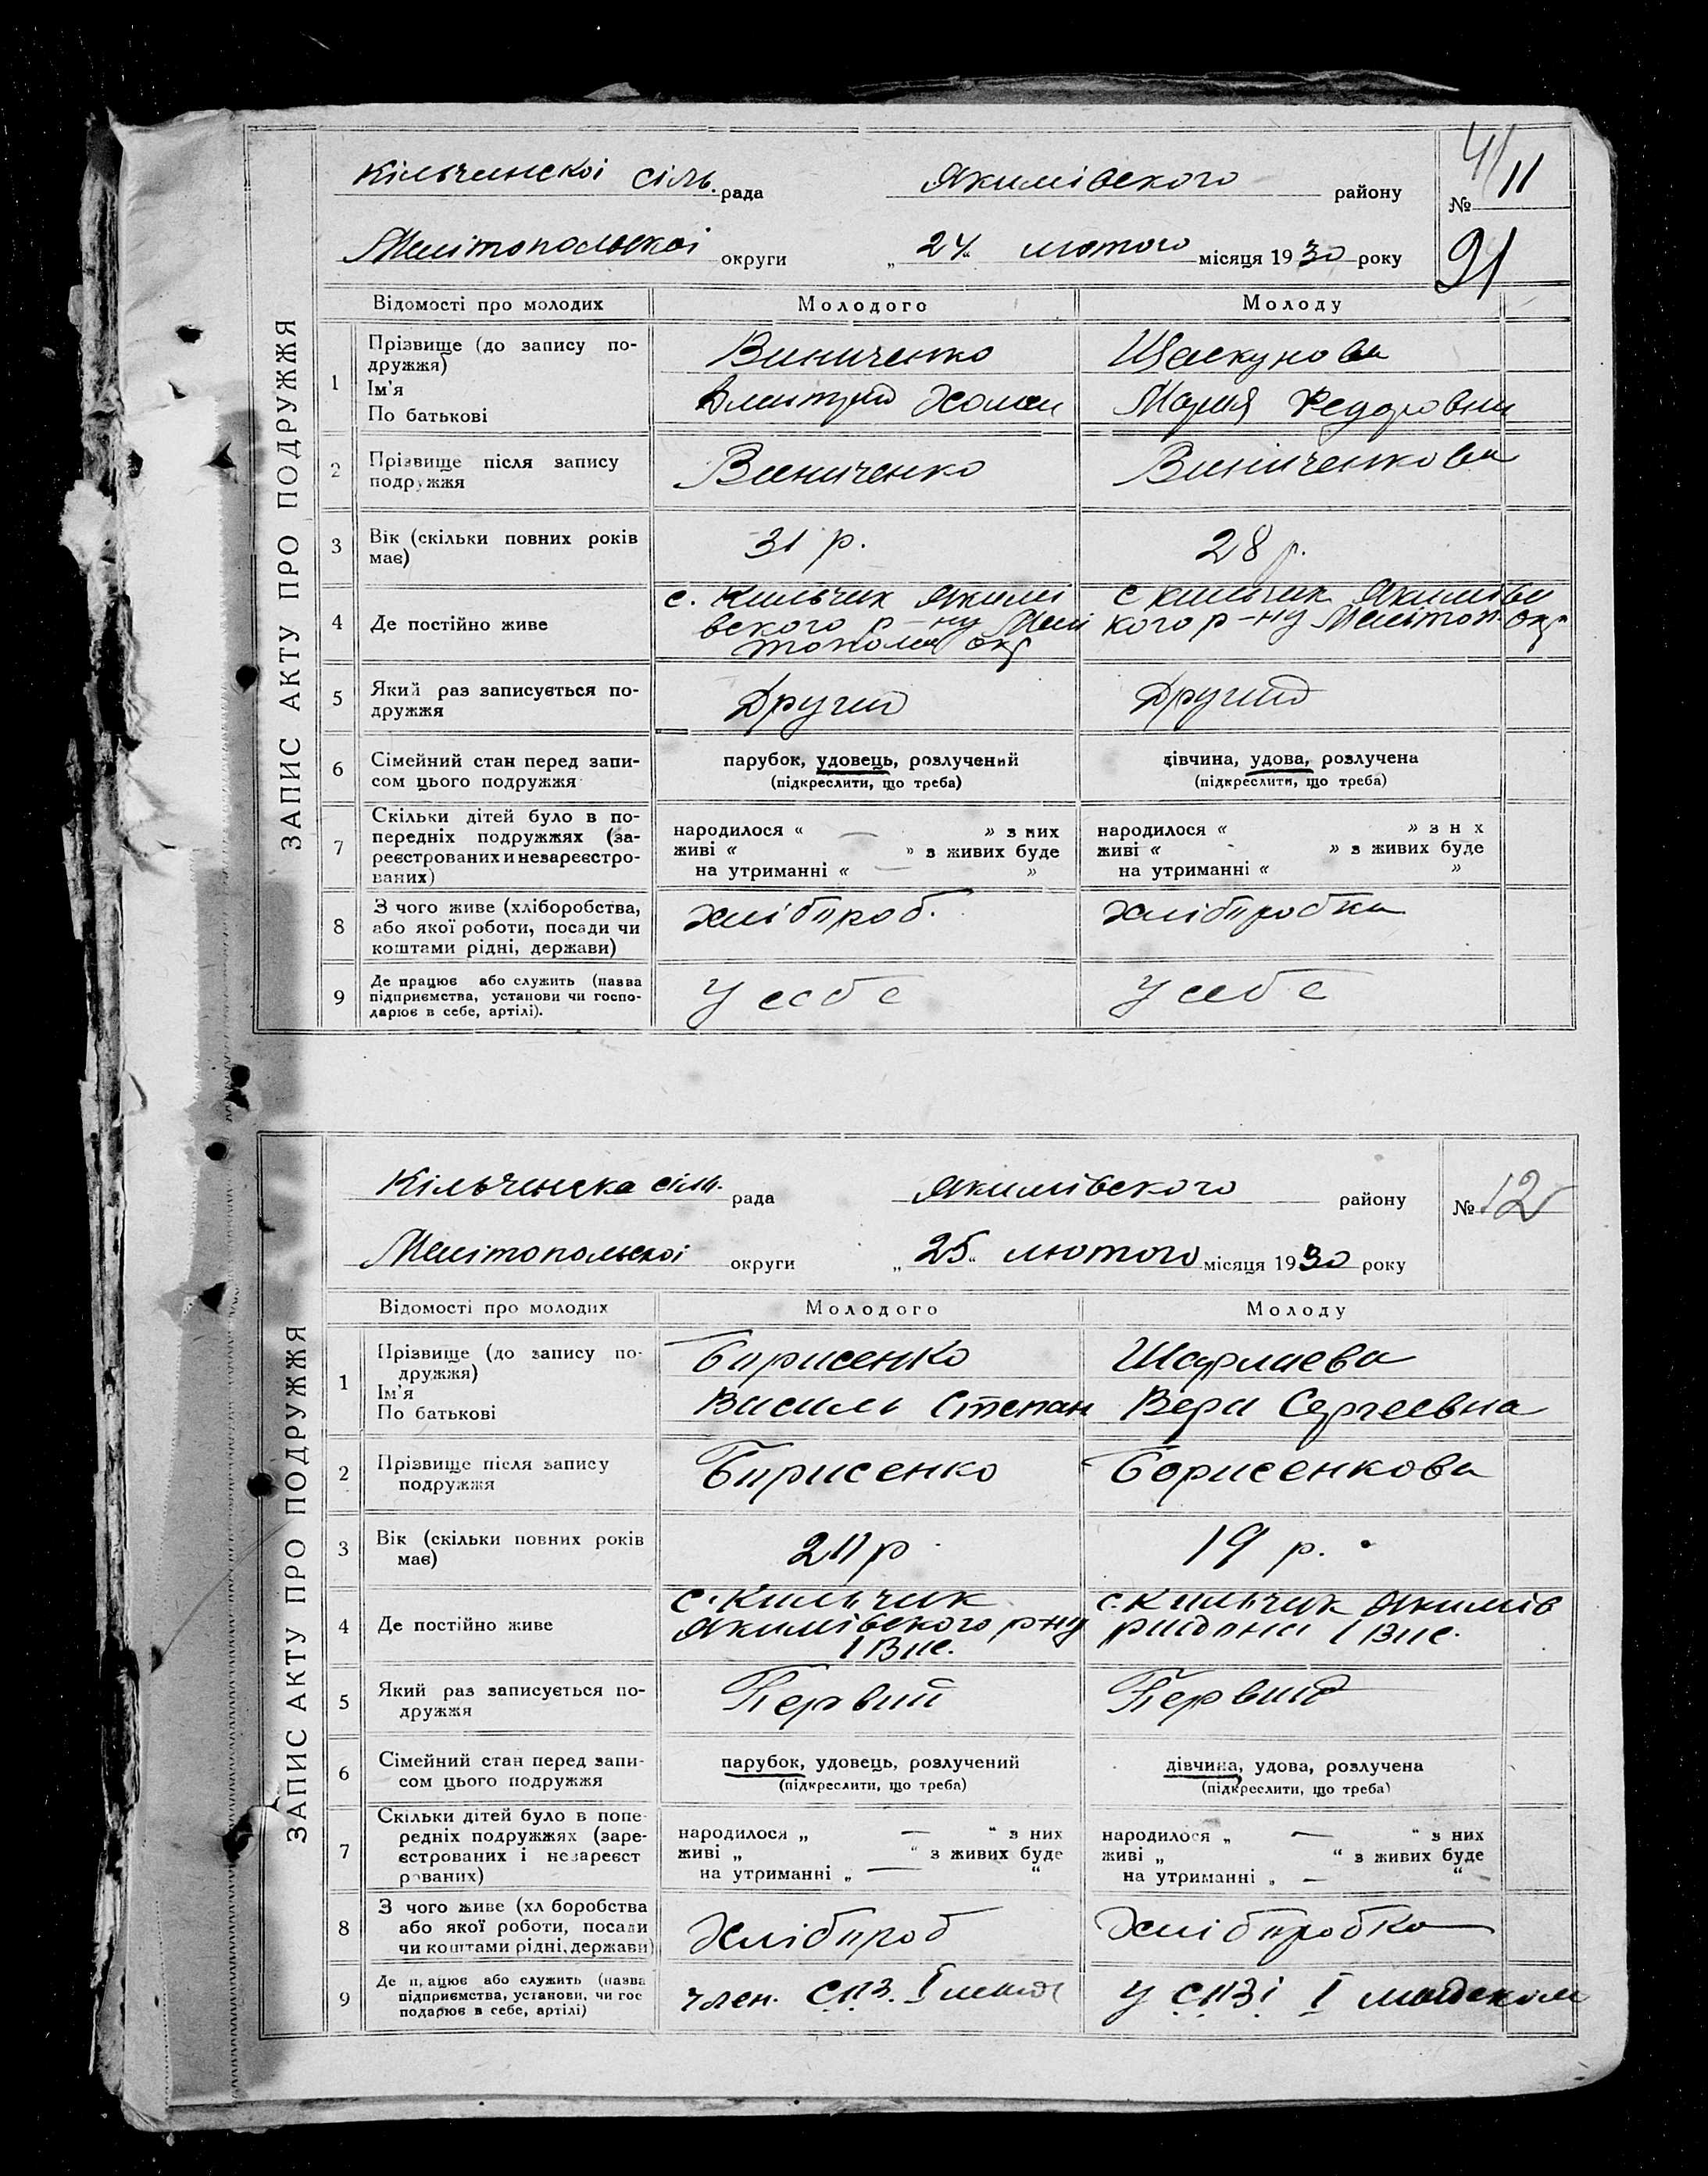 ЗАПИС АКТУ ПРО ПОДРУЖЖЯ
Кільченскоі сіль. рада Якимівского району № 11
91
Мелітопольскоі округи „24“ лютого місяця 1930 року
Відомості про молодих Молодого Молоду
1 Прізвище (до запису по-
дружжя)
Ім'я
По батькові
Виниченко
Мария Федоровна
2 Прізвище після запису
подружжя
Виниченко Виниченкова
3 Вік (скільки повних років
має)
31 р. 28 р.
4 Де постійно живе
с. Кильчик Якимі
вского р-ну Мелі
окр
с Кильчик Якимівс
кого р-ну Мелітоп. окр
5 Який раз записується по-
дружжя
Другий Другий
6 Сімейний стан перед запи-
сом цього подружжя
парубок, удовець, розлучений
(підкреслити, що треба)
дівчина, удова, розлучена
(підкреслити, що треба)
7 Скільки дітей було в по-
передніх подружжях (за-
реєстрованих и незареєстро-
ваних)
народилося « — » з них
живі « » з живих буде
на утриманні « — »
народилося « » з н х
живі « » з живих буде
на утриманні « »
8 З чого живе (хліборобства,
або якої роботи, посади чи
коштами рідні, держави)
хлібороб. хліборобка
9 Де працює або служить (назва
підприємства, установи чи госпо-
дарює в себе, артілі).
У себе У себе
ЗАПИС АКТУ ПРО ПОДРУЖЖЯ
Кільченска сіль. рада Якимівского району № 12
Мелітопольскоі округи „25“ лютого місяця 1930 року
Відомості про молодих Молодого Молоду
1 Прізвище (до запису по-
дружжя)
Ім'я
По батькові
Борисенко
Василь Степан
Вера Сергеевна
2 Прізвище після запису
подружжя
Борисенко Борисенкова
3 Вік (скільки повних років
має)
19 р.
4 Де постійно живе
с. Кильчик
Якимівского р-ну
с. Кильчик Якимів
5 Який раз записується по-
дружжя
Первий Первий
6 Сімейний стан перед запи-
сом цього подружжя
парубок, удовець, розлучений
(підкреслити, що треба)
дівчина, удова, розлучена
(підкреслити, що треба)
7 Скільки дітей було в попе-
редніх подружжях (заре-
єстрованих і незареєст
рованих)
народилося „ — “ з них
живі „ “ з живих буде
на утриманні „ — “
народилося „ — “ з них
живі „ “ з живих буде
на утриманні „ — “
8 З чого живе (хл боробства
або якої роботи, посади
чи коштами рідні, держави)
Хлібороб Хліборобка
9 Де працює або служить (назва
підприємства, установи, чи гос
подарює в себе, артілі)
член. СОЗ. І
У СОЗі І